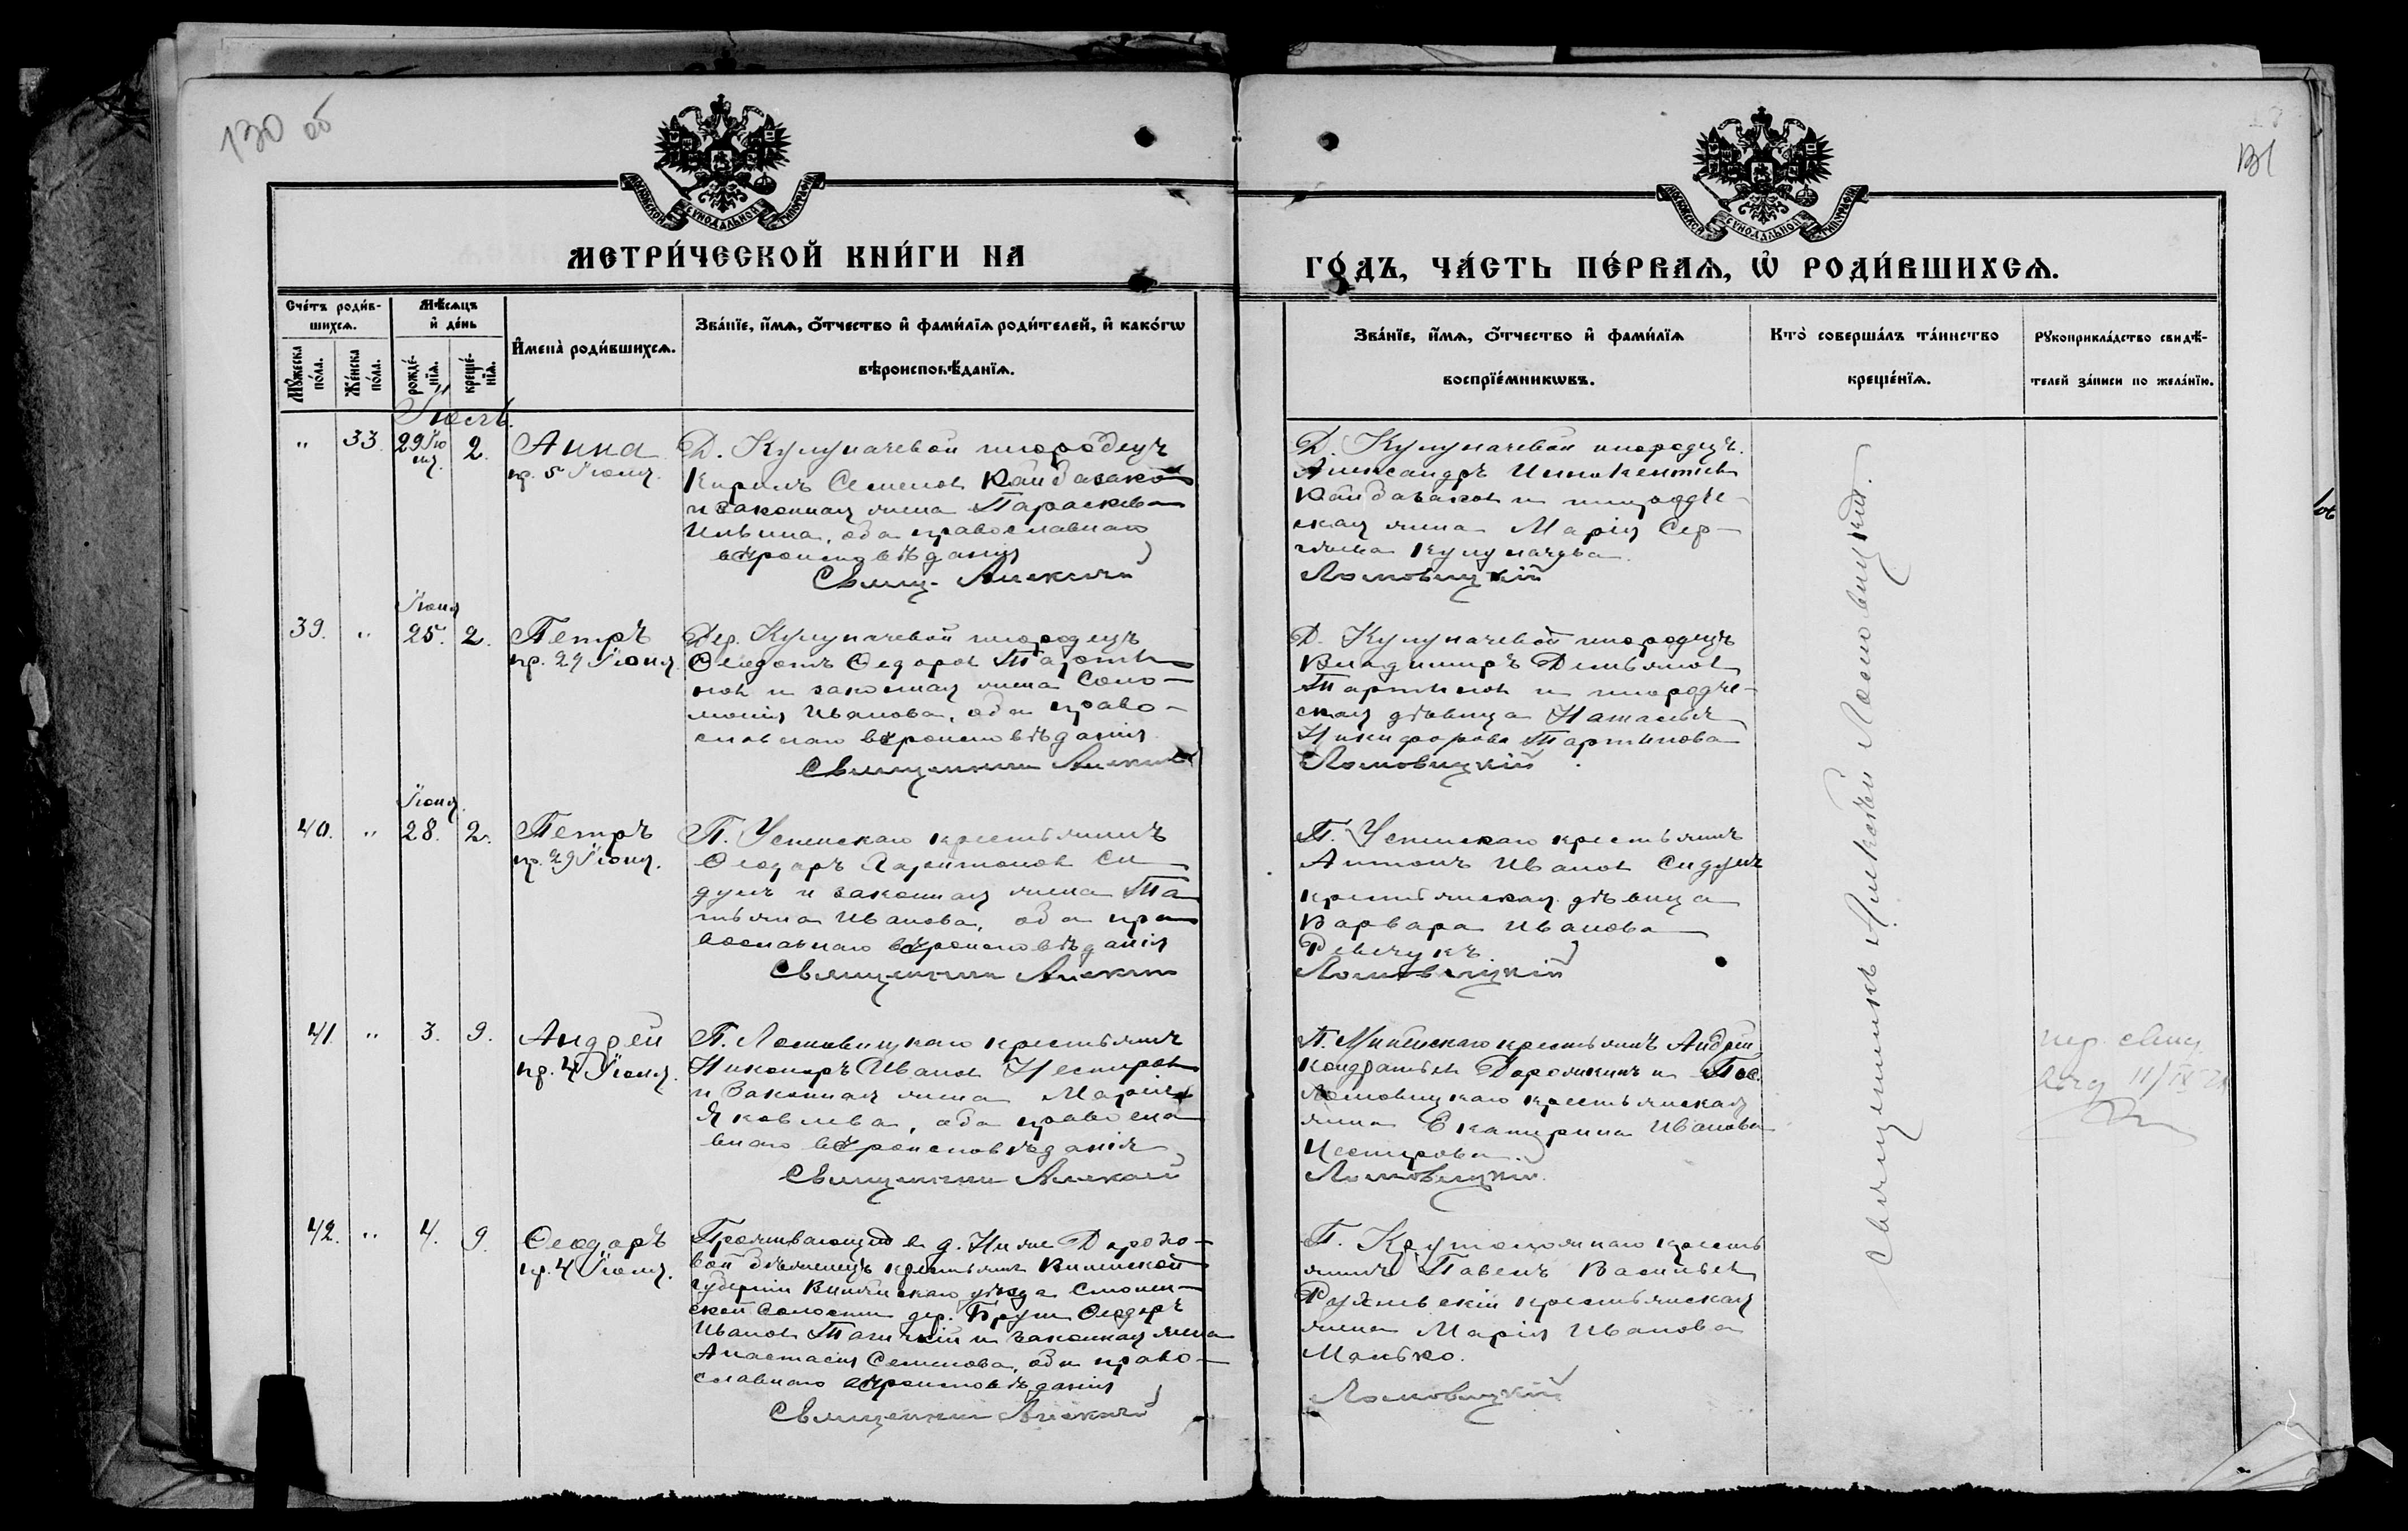 130 об
131
МЕТРИ́ЧЕСКОЙ КНИ́ГИ НА
ГО́ДЪ, ЧА́СТЬ ПЕ́РВАЯ, Ѡ РОДИ́ВШИХСЯ.
Сче́тъ роди́в-
шихся.
Мѣ́сяцъ
и де́нь
Му́жеска
по́ла.
Же́нска
по́ла.
рожде́-
нїя.
креще́-
нїя.
Имена̀ роди́вшихся.
Зва́нїе, и́мя, ѻ́тчество и фами́лїя роди́телей, и како́гѡ
вѣроисповѣ́данїя.
Зва́нїе, и́мя, ѻ́тчество и фами́лїя
воспрїе́мникѡвъ.
Кто̀ соверша́лъ та́инство
креще́нїя.
Рукоприкла́дство свидѣ́-
телей за́писи по жела́нїю.
Іюль.
" 33. 29 Iю
ня. 2. Анна
пр. 5 Іюля.
Д. Кулупачевой инородецъ
Кирилъ Семенов Кайдазаков
и законная жена Параскева
Ильина, оба православнаго
вѣроисповѣданія
Свящ. Алексѣй
Д. Кулупачевой инородецъ
Александръ Иннокентіев
Кайдазаков и инородче-
ская жена Марія Сер-
гѣева Кулупачева.
Ломовицкій
Іюня
39. " 25. 2. Петръ
пр. 29 Іюня.
Дер. Кулупачевой инородецъ
Ѳеодотъ Ѳедоров Торти-
нов и законная жена Соло-
монія Иванова, оба право-
славнаго вѣроисповѣданія.
Священникъ Алексѣй
Д. Кулупачевой инородецъ
Владимиръ Демьянов
Тортинов и инородче-
ская дѣвица Наталья
Никифорова Тортинова
Ломовицкій
Іюня.
40. " 28. 2. Петръ
пр. 29 Іюня.
П. Успенскаго крестьянинъ
Ѳеодоръ Харитонов Си-
дунъ и законная жена Та-
тьяна Иванова, оба пра-
вославнаго вѣроисповѣданія
Священникъ Алексѣй
П. Успенскаго крестьянинъ
Антонъ Иванов Сидунъ
крестьянская дѣвица
Варвара Иванова
Ревчукъ.
Ломовицкій
41. " 3. 9. Андрей
пр. 4 Іюля.
П. Ломовицкаго крестьянинъ
Никоноръ Иванов Нестеров
и законная жена Марія
Яковлева, оба правосла-
внаго вѣроисповѣданія
Священникъ Алексѣй
Андрей
Кондратьев и Пос.
Ломовицкаго крестьянская
жена Екатерина Иванова
Нестерова.
Ломовицкій.
42. " 4. 9. Ѳеодоръ
пр. 4 Іюля.
Проживающій в д. Ниже Дорохо-
вой крестьянинъ Виленской
губерніи Виленскаго уѣзда
волости дер. Ѳеодоръ
Иванов и законная жена
Анастасія Семенова, оба право-
славнаго вѣроисповѣданія
Священникъ Алексѣй
П. Крутоложнаго кресть
янинъ Павелъ Васильев
крестьянская
жена Марія Иванова
Манько.
Ломовицкій
Священникъ Алексѣй Ломовицкій.